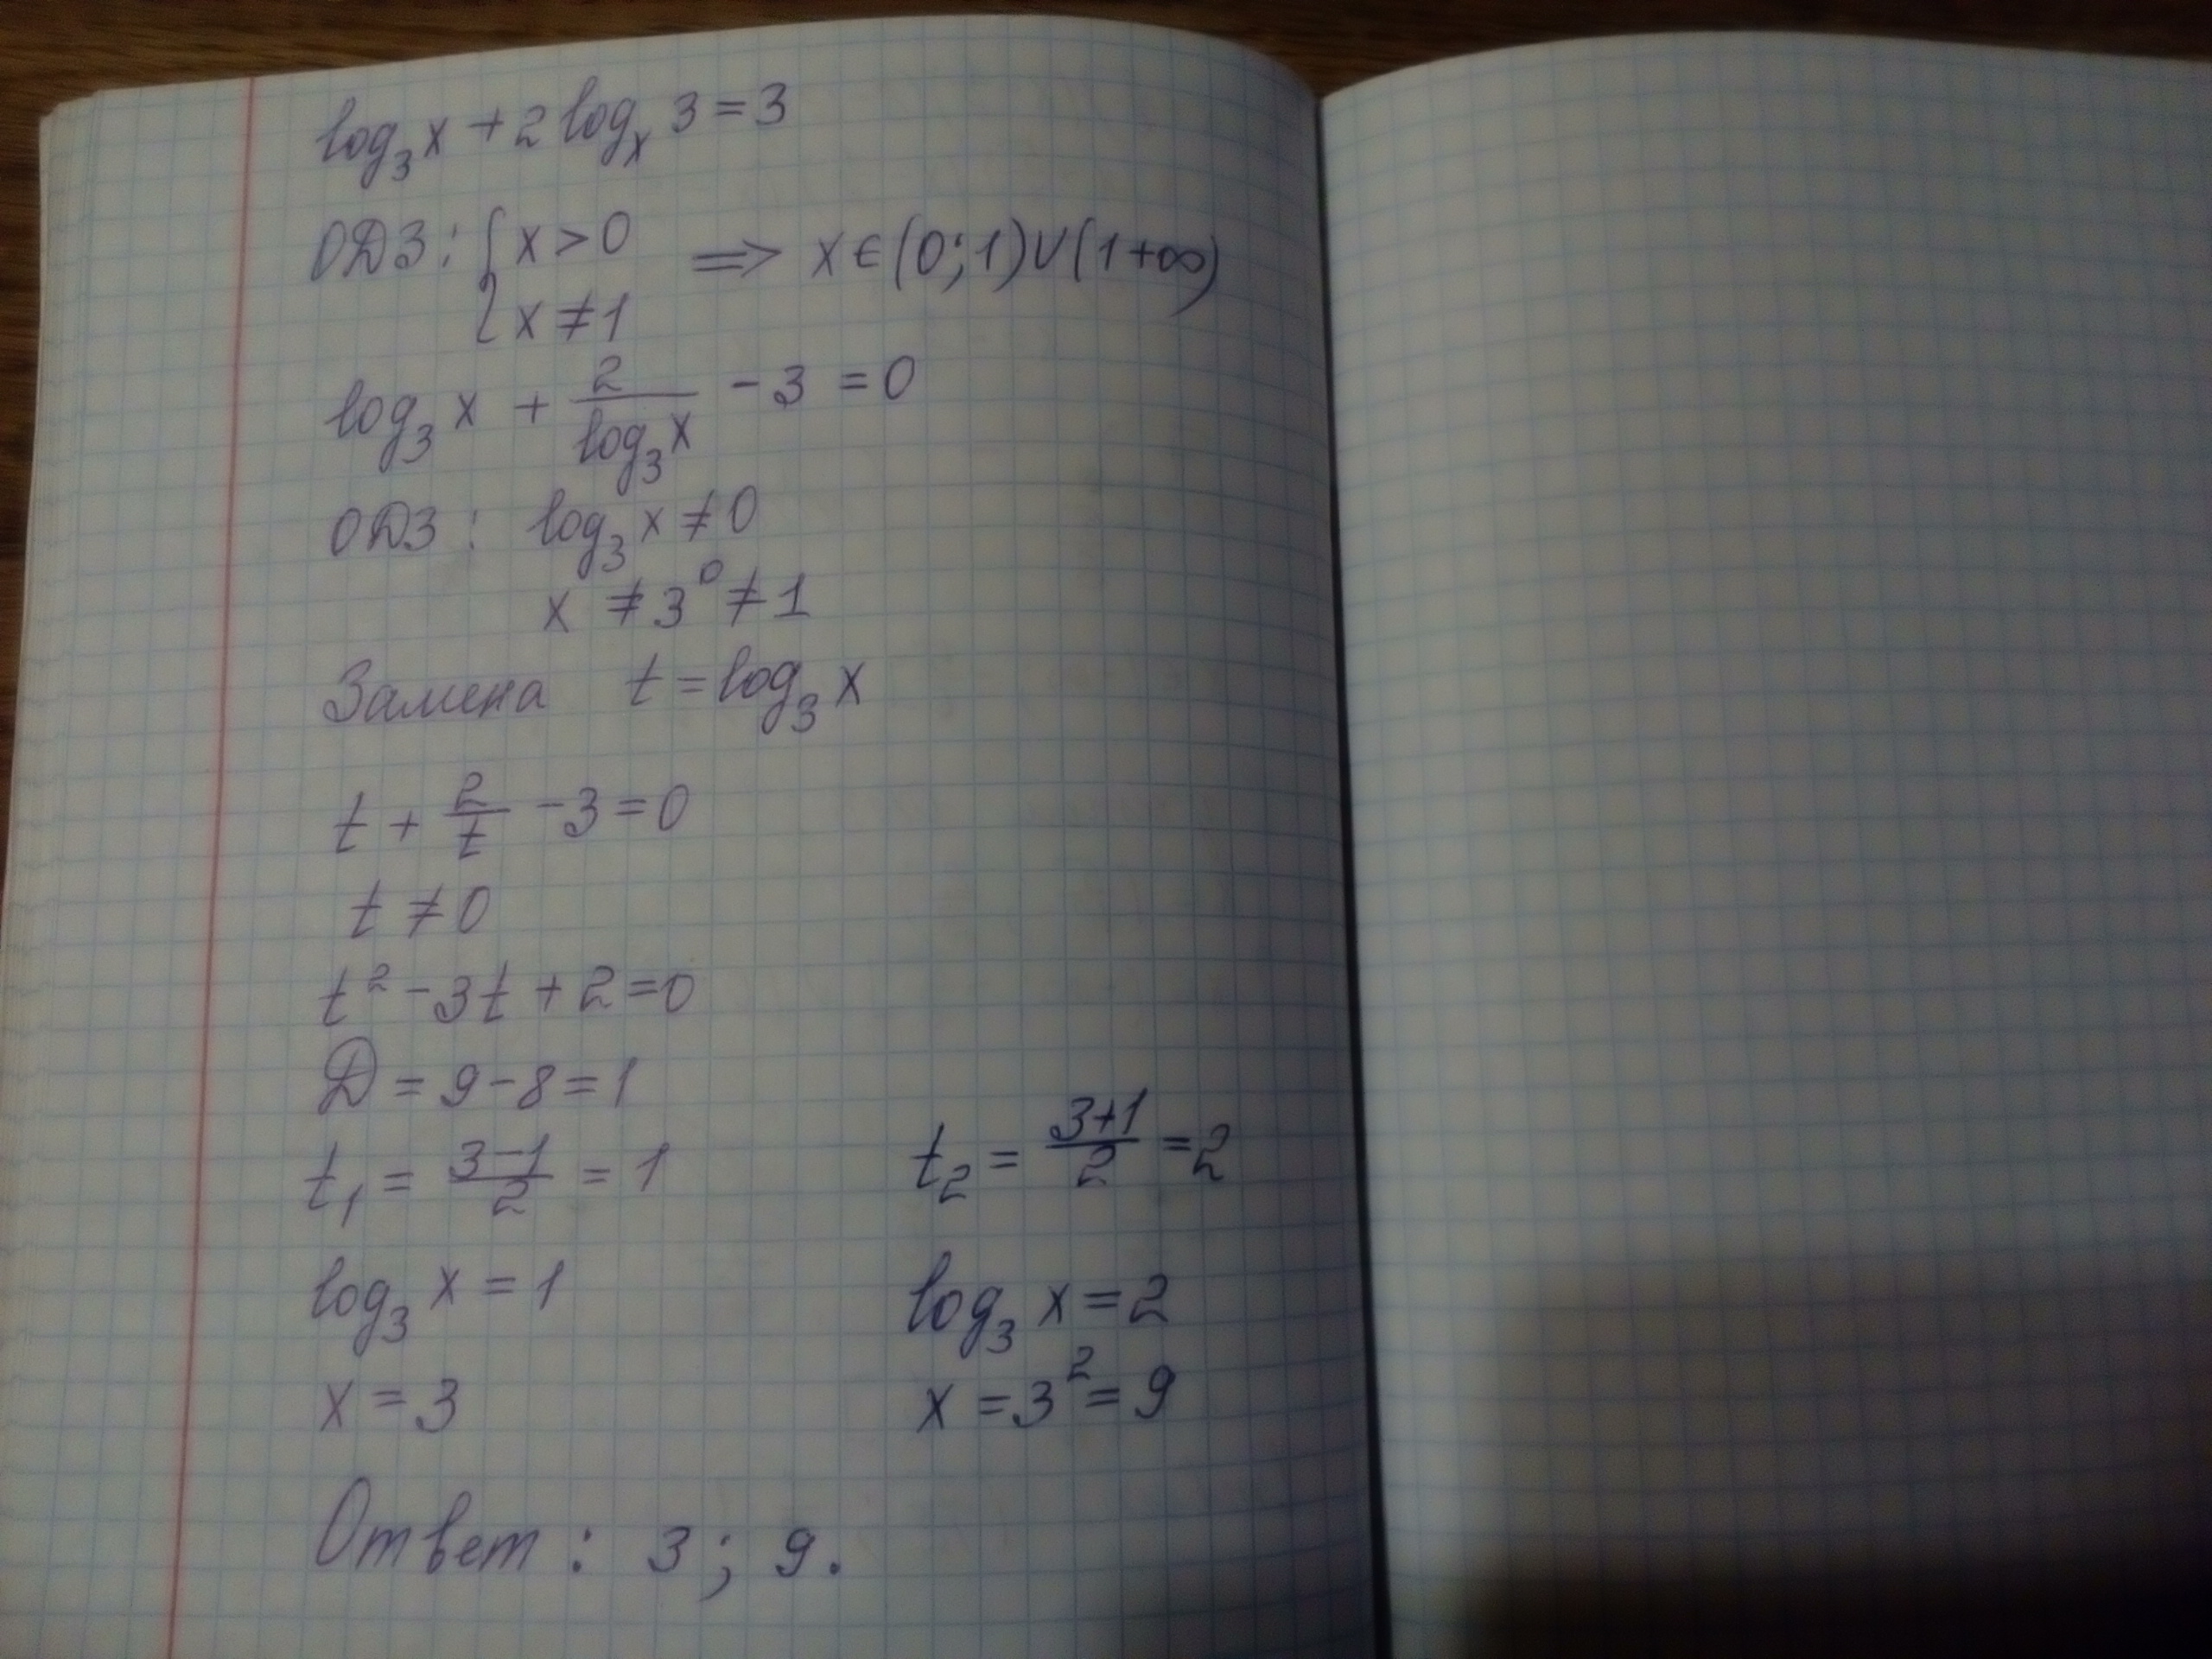 log₃x + 2 logₓ 3 = 3
ОДЗ: { x > 0 ⟹ x ∈ (0; 1) ∪ (1 +∞)
{ x ≠ 1
log₃ x + 2/log₃ x - 3 = 0
ОДЗ: log₃ x ≠ 0
x ≠ 3⁰ ≠ 1
Замена t = log₃ x
t + 2/t - 3 = 0
t ≠ 0
t² - 3t + 2 = 0
D = 9 - 8 = 1
t₁ = (3-1)/2 = 1 t₂ = (3+1)/2 = 2
log₃ x = 1 log₃ x = 2
x = 3 x = 3² = 9
Ответ: 3; 9.